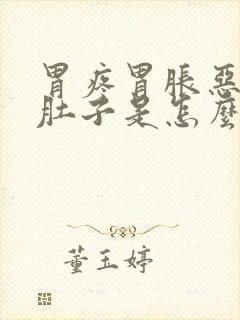 胃疼胃胀恶
肚子是怎麼
董玉婷